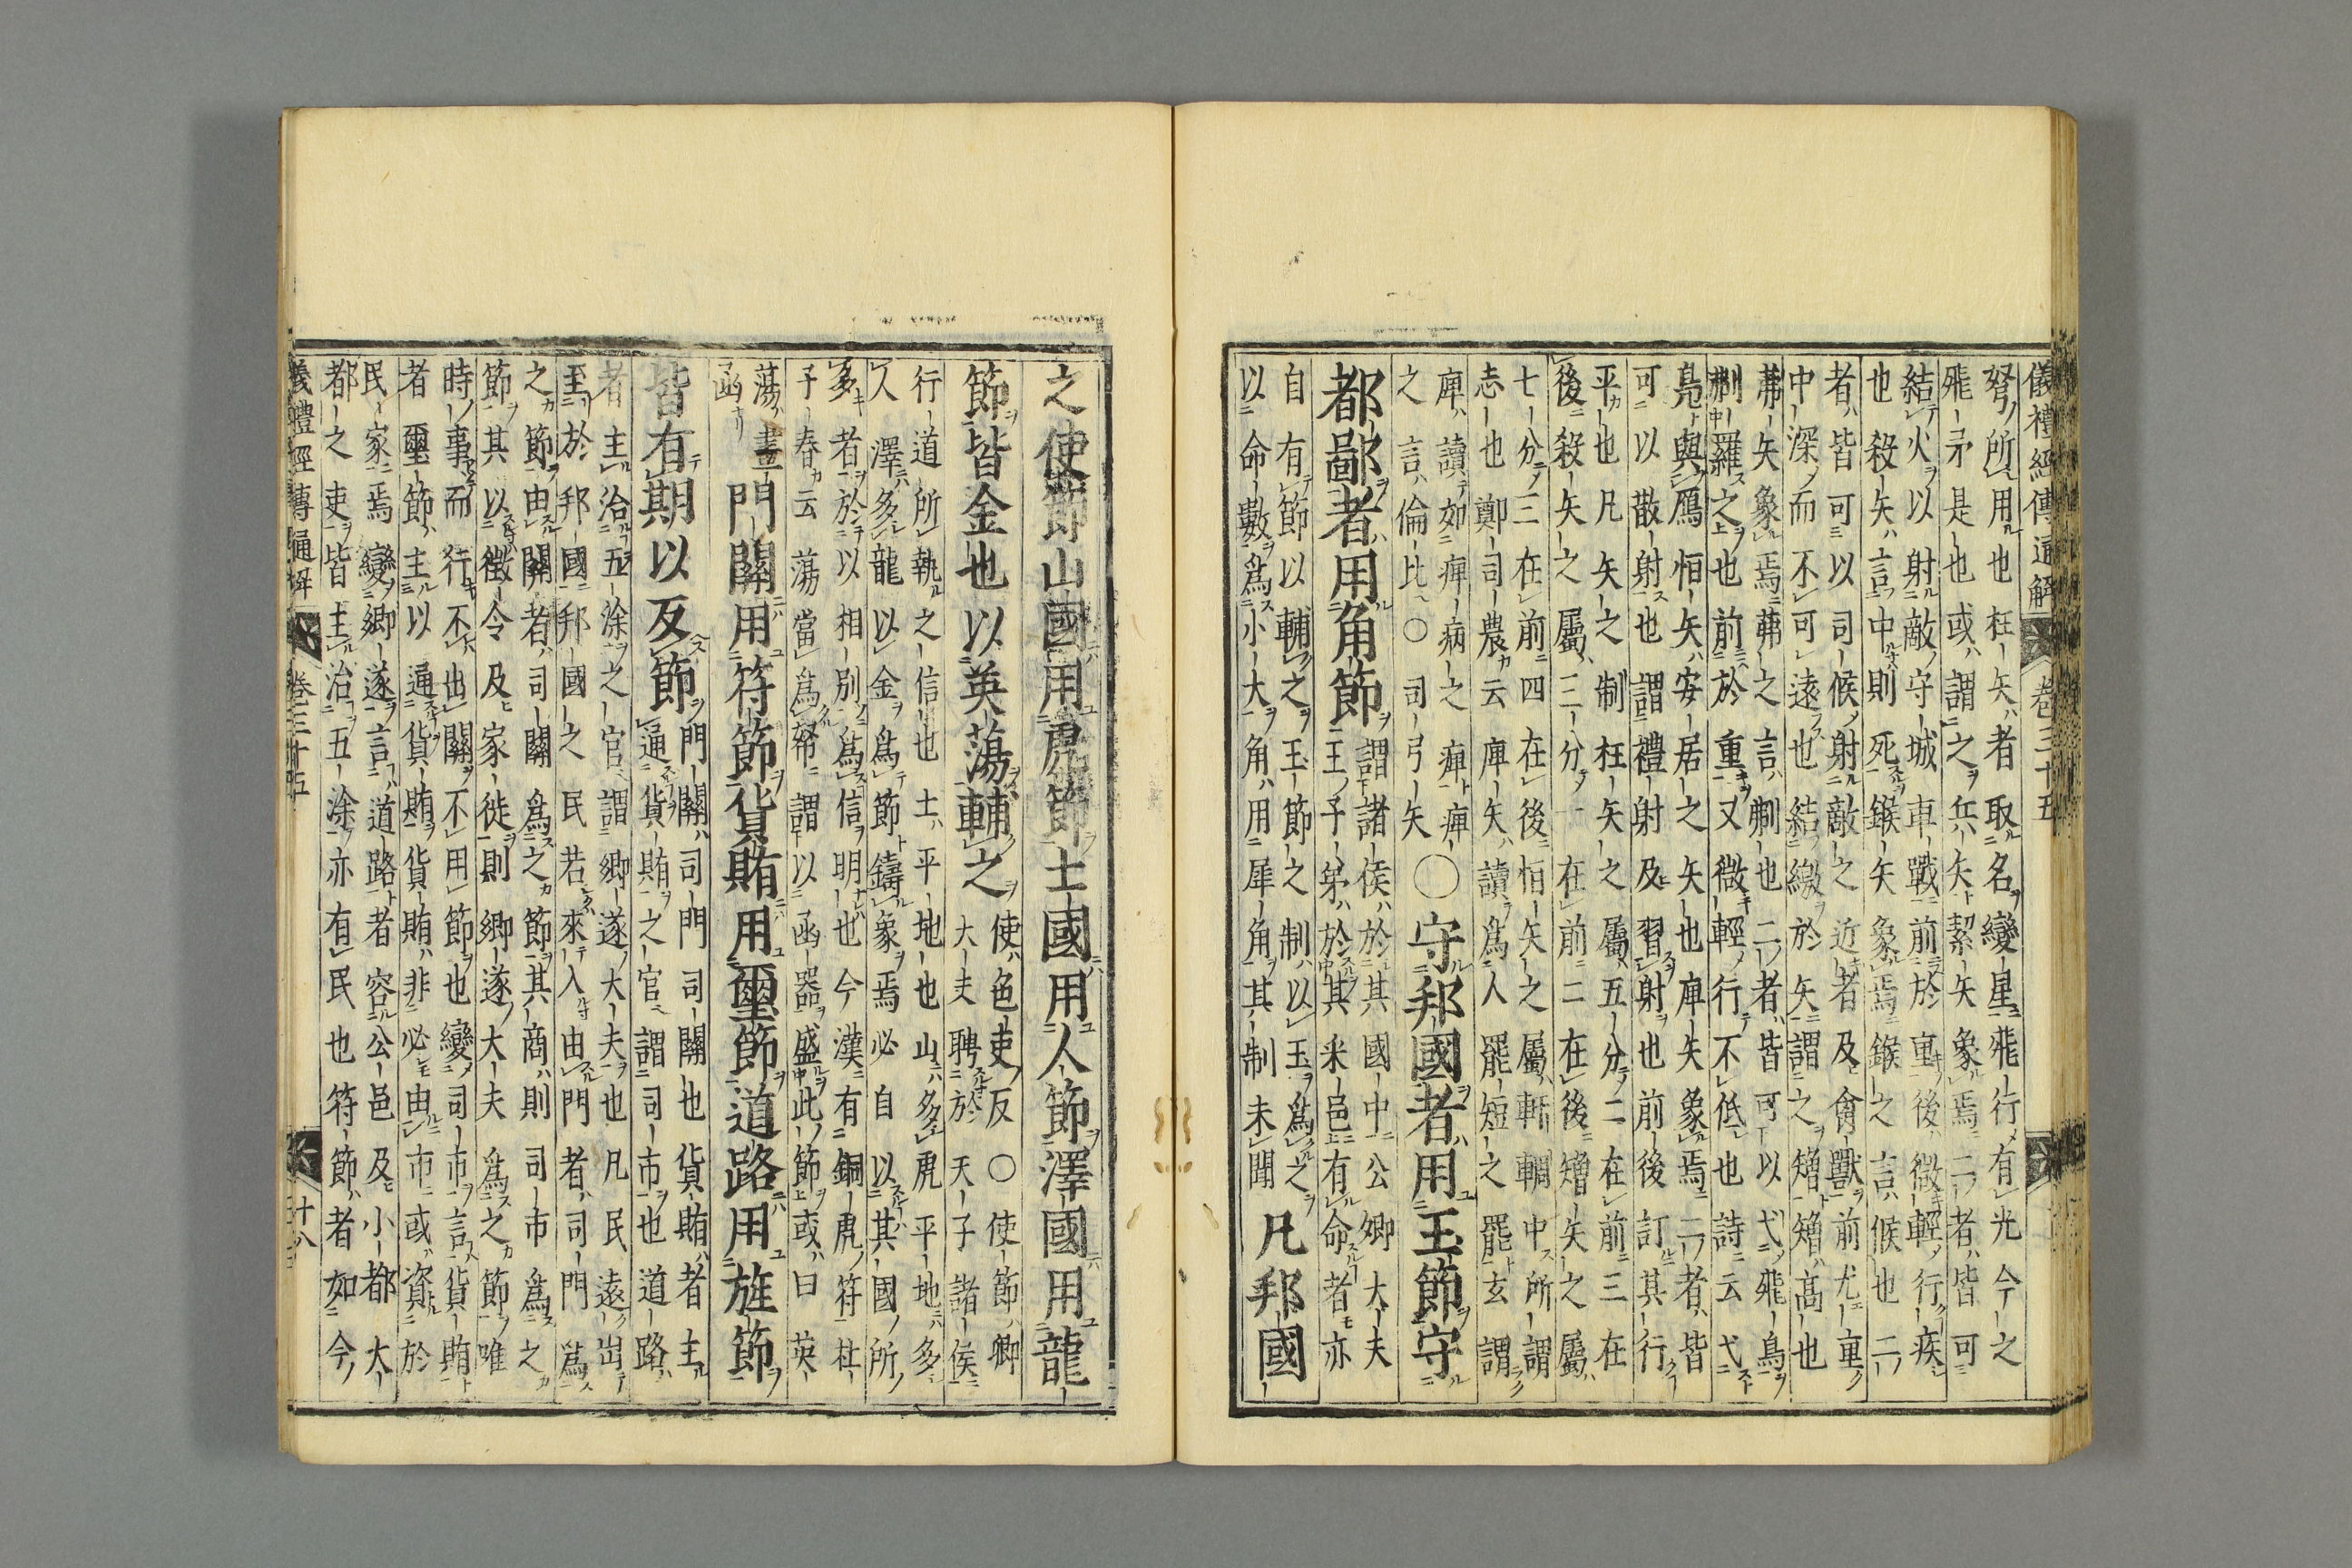 儀禮經傳通解 卷三十五
弩所用也枉矢者取名變星飛行有光今之
飛矛是也或謂之兵矢絜矢象焉二者皆可
結火以射敵守城車戰前於重後微輕行疾
也殺矢言中則死鍭矢象焉鍭之言候也二
者皆可以司候射敵之近者及禽獸前尤重
中深而不可遠也結繳於矢謂之矰矰高也
茀矢象焉茀之言刜也二者皆可以弋飛鳥
刜羅之也前於重又微輕行不低也詩云弋
鳧與鴈恒矢安居之矢也庳矢象焉二者皆
可以散射也謂禮射及習射也前後訂其行
平也凡矢之制枉矢之屬五分二在前三在
後殺矢之屬三分一在前二在後矰矢之屬
七分三在前四在後恒矢之屬軒輖中所謂
志也鄭司農云庳矢讀爲人罷短之罷玄謂
庳讀如痺病之痺
之言倫比○司弓矢
○守邦國者用玉節守
都鄙者用角節
謂諸侯於其國中公卿大夫
王子弟於其采邑有命者亦
自有節以輔之玉節之制以玉爲之
以命數爲小大角用犀角其制未聞
凡邦國
之使節山國用虎節土國用人節澤國用龍
節皆金也以英蕩輔之
使色吏反○使節卿
大夫聘於天子諸侯
行道所執之信也土平地也山多虎平地多
人澤多龍以金爲節鑄象焉必自以其國所
多者於以相別爲信明也今漢有銅虎符杜
子春云蕩當爲帑謂以函器盛此節或曰英
蕩畫
函
門關用符節貨賄用璽節道路用旌節
皆有期以反節
門關司門司關也貨賄者主
通貨賄之官謂司市也道路
者主治五涂之官謂鄉遂大夫也凡民遠出
至於邦國邦國之民若來入由門者司門爲
之節由關者司關爲之節其商則司市爲之
節其以徵令及家徙則鄉遂大夫爲之節唯
時事而行不出關不用節也變司市言貨賄
者璽節主以通貨賄貨賄非必由市或資於
民家焉變鄉遂言道路者容公邑及小都大
都之吏皆主治五涂亦有民也符節者如今
儀禮經傳通解 卷三十五 十八